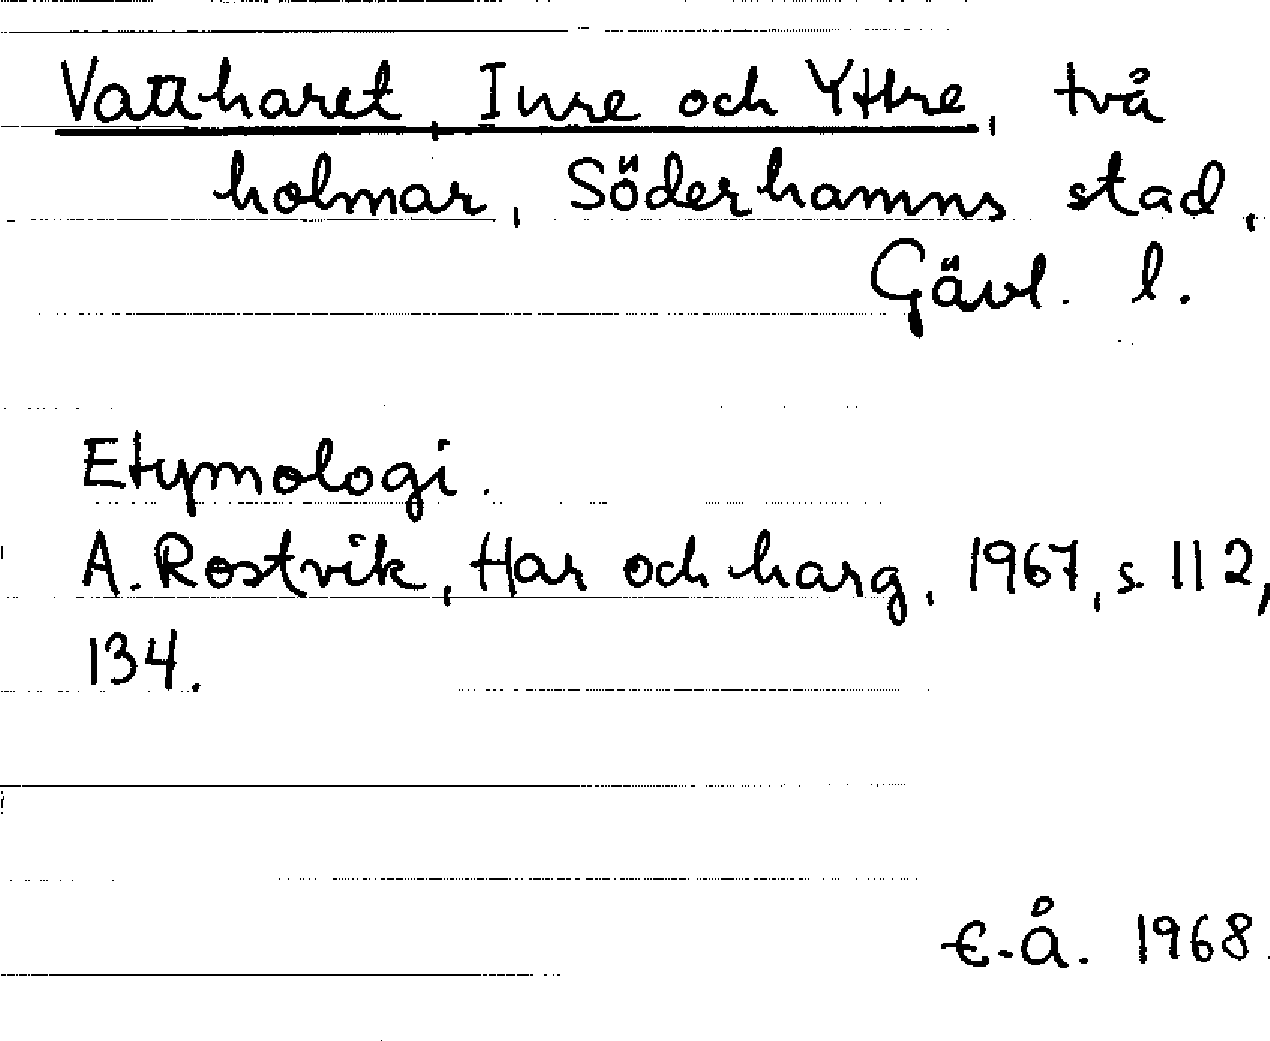 Vattharet, Inre och Yttre, två
holmar, Söderhamns stad,
Gävl. l.
Etymologi.
A. Rostvik, Har och harg, 1967, s 112,
134.
E.Å. 1968.